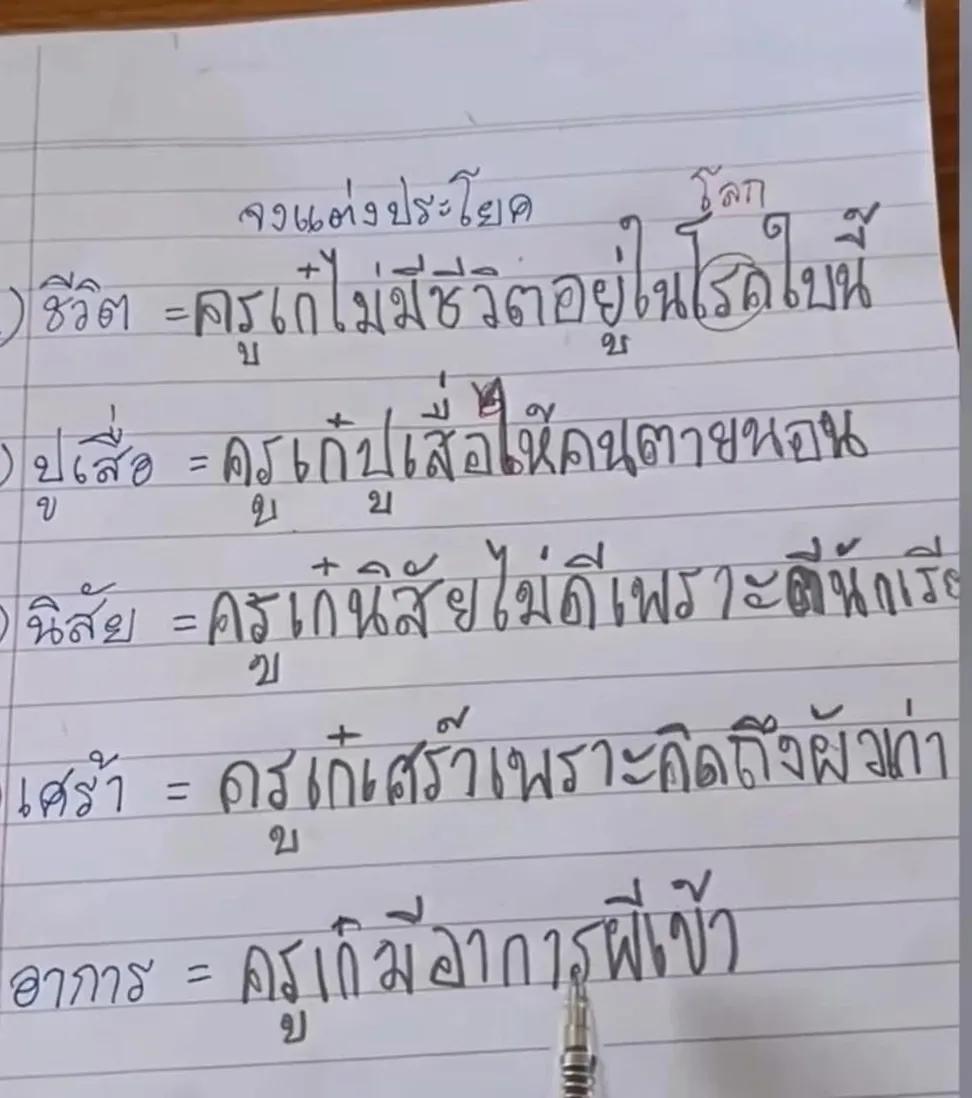 จงแต่งประโยค
โลก
) ชีวิต = ครูเก๋ไม่มีชีวิตอยู่ในโรคใบนี้
) ปูเสื่อ = ครูเก๋ปูเสื่อให้คนตายนอน
) นิสัย = ครูเก๋นิสัยไม่ดีเพราะตีนักเรีย
เศร้า = ครูเก๋เศร้าเพราะคิดถึงผัวเก่า
อาการ = ครูเก๋มีอาการผีเข้า